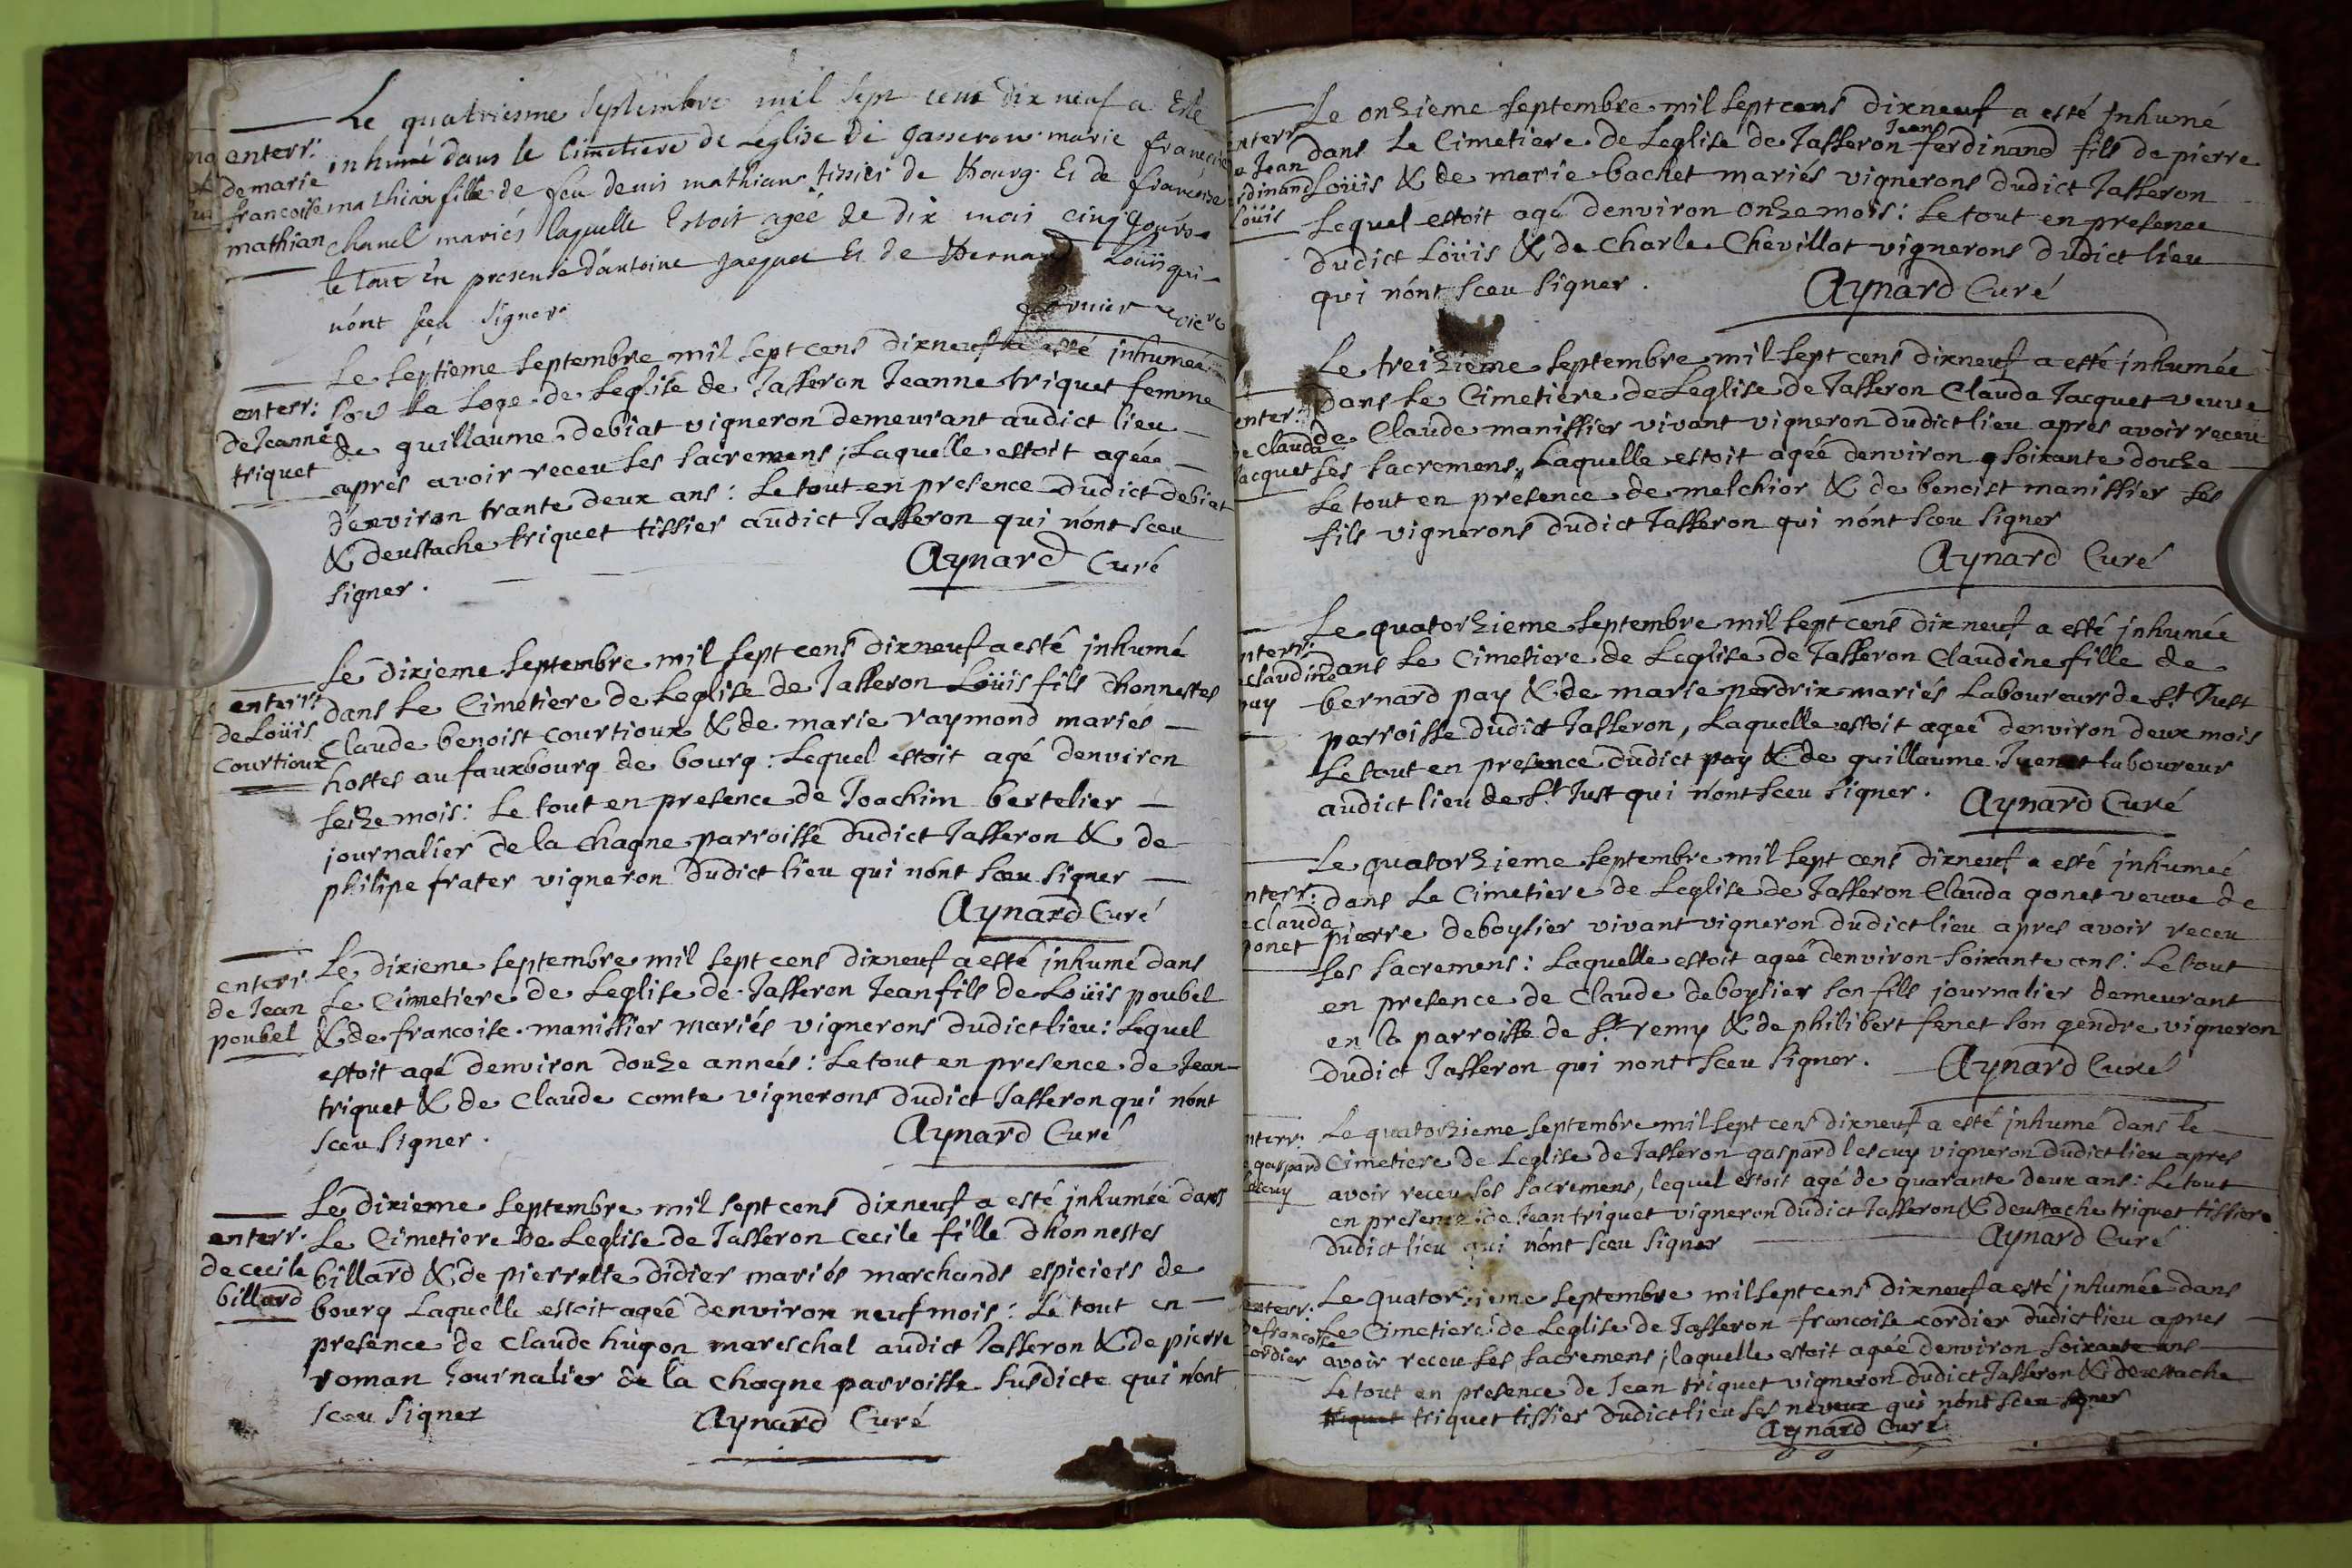 Le quatriesme Septembre mil sept cens dix neuf a Esté
enterr: inhumé dans le Cimetiere de Leglise de Jasseron marie francoise
de marie mathian fille de feu denis mathian tissier de Bourg Et de francoise
francoise
mathian chanel mariés laquelle Estoit agée de dix mois cinq Jours
le tout en presence d'antoine Jaquet Et de Bernard Loüis qui
nónt sceu signer
Le septieme septembre mil sept cens dixneuf a esté inhumeé
enterr: sous la Loge de Leglise de Jasseron Jeanne triquet femme
de Jeanne de guillaume debiat vigneron demeurant audict lieu
triquet apres avoir receu ses sacremens ; Laquelle estoit agéé
dénviron trante deux ans : Le tout en presence dudict debiat
& deustache triquet tissier audict Jasseron qui nónt sceu
signer.
Aynard Curé
Le dixieme septembre mil sept cens dixneuf a esté inhumé
enterr: dans Le Cimetiere de Leglise de Jasseron Loüis fils dhonnestes
de Loüis Claude benoist courtioux & de marie raymond mariés
courtioux hostes au fauxbourg de bourg : Lequel estoit agé denviron
seize mois : Le tout en presence de Joachim bertelier
journalier de la Chagne parroisse dudict Jasseron & de
philipe frater vigneron dudict lieu qui nónt sceu signer
Aynard Curé
enterr Le dixieme septembre mil sept cens dixneuf a esté inhumé dans
de Jean Le Cimetiere de Leglise de Jasseron Jean fils de Loüis poubel
poubel & de francoise manissier mariés vignerons dudict lieu : Lequel
estoit agé denviron douze années : Le tout en presence de Jean
triquet & de Claude comte vignerons dudict Jasseron qui nónt
sceu signer.
Aynard Curé
Le dixieme septembre mil sept cens dixneuf a esté inhumée dans
enterr. Le Cimetiere de Leglise de Jasseron Cecile fille dhonnestes
de cecile billard & de pierrette didier mariés marchands espiciers de
billard bourg Laquelle estoit ageé denviron neuf mois : Le tout en
presence de Claude hugon mareschal audict Jasseron & de pierre
roman Journalier de la Chagne parroisse susdicte qui nónt
sceu signer
Aynard Curé
Le onzieme septembre mil sept cens dixneuf a esté inhumé
enterr dans Le Cimetiere de Leglise de Jasseron Jean ferdinand fils de pierre
Jean
Loüis & de marie bachet mariés vignerons dudict Jasseron
Loüis Lequel estoit agé denviron onze mois : Le tout en presence
dudict Loüis & de Charle Chevillot vignerons dudict lieu
qui nónt sceu signer.
Aynard Curé
Le treizieme septembre mil sept cens dixneuf a esté inhumée
dans Le Cimetiere de Leglise de Jasseron Clauda Jacquet veuve
enter: de Claude manissier vivant vigneron dudict lieu apres avoir receu
de Clauda
Jacquet ses sacremens, Laquelle estoit agéé denviron soixante douze
Le tout en presence de melchior & de benoist manissier ses
fils vignerons dudict Jasseron qui nónt sceu signer
Aynard Curé
Le quatorzieme septembre mil sept cens dixneuf a esté inhumée
nterr: dans Le Cimetiere de Leglise de Jasseron Claudine fille de
claudine
pay bernard pay & de marie perdrix mariés Laboureurs de St Just
parroisse dudict Jasseron, Laquelle estoit ageé denviron deux mois
Le tout en presence dudict pay & de guillaume Juenet laboureur
audict lieu de St Just qui nónt sceu signer.
Aynard Curé
Le quatorzieme septembre mil sept cens dixneuf a esté inhumeé
nterr: dans Le Cimetiere de Leglise de Jasseron Clauda gonet veuve de
clauda
gonet pierre deboysier vivant vigneron dudict lieu apres avoir receu
ses sacremens : Laquelle estoit ageé denviron soixante ans : Le tout
en presence de Claude deboysier son fils journalier demeurant
en la parroisse de St remy & de philibert fenet son gendre vigneron
dudict Jasseron qui nont sceu signer.
Aynard Curé
nterr: Le quatorzieme septembre mil sept cens dixneuf a esté inhumé dans le
gaspard Cimetiere de Leglise de Jasseron gaspard lescuy vigneron dudict lieu apres
lescuy avoir receu ses sacremens, lequel estoit agé de quarante deux ans : Le tout
en presence de Jean triquet vigneron dudict Jasseron & deustache triquet tissier
dudict lieu qui nónt sceu signer
Aynard Curé
enterr. Le quatorzieme septembre mil sept cens dixneuf a esté inhumée dans
de francoise Le Cimetiere de Leglise de Jasseron francoise cordier dudict lieu apres
cordier avoir receu ses sacremens ; laquelle estoit agéé denviron soixante ans
Le tout en presence de Jean triquet vigneron dudict Jasseron & deustache
triquet triquet tissier dudict lieu ses neveux qui nónt sceu signer
Aynard Curé